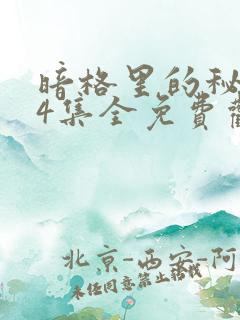 暗格里的秘
4集全免费
北京-西安-阿
未经同意禁止转载